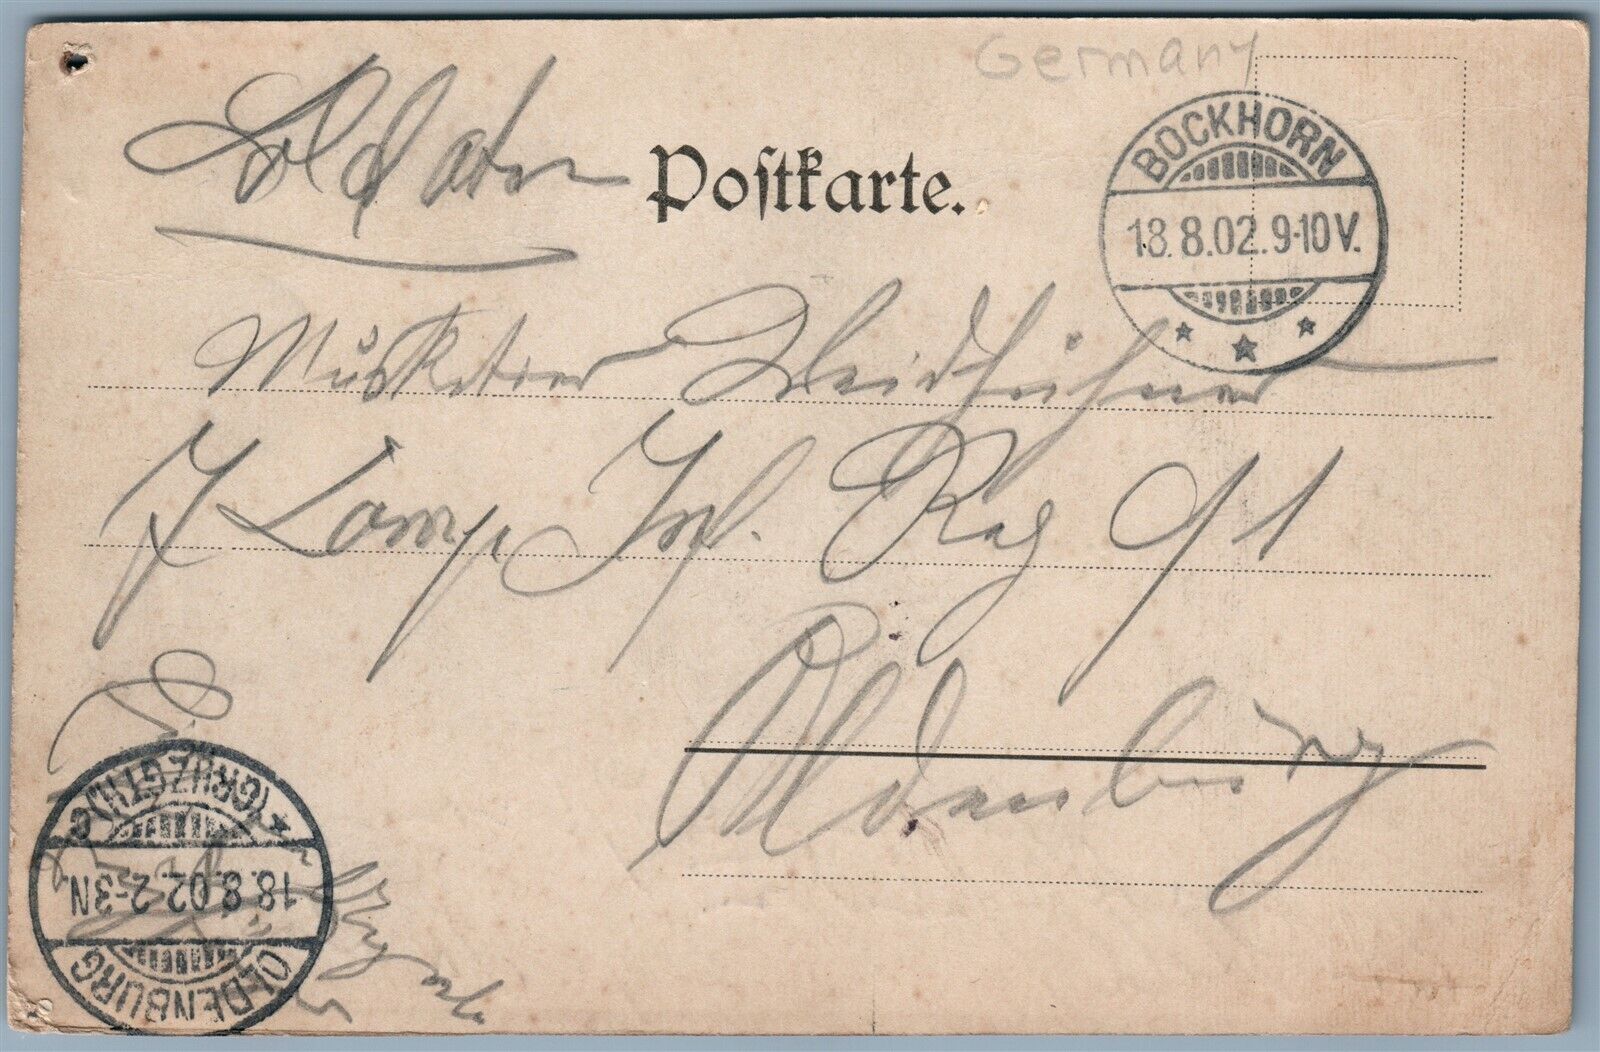 Germany
Soldaten
Postkarte.
BOCKHORN
18.8.02.9-10V.
Musketier
7 Comp. Inf. Reg 91
Oldenburg
OLDENBURG
18.8.02.2-3N
*(GRHZGTH.)c